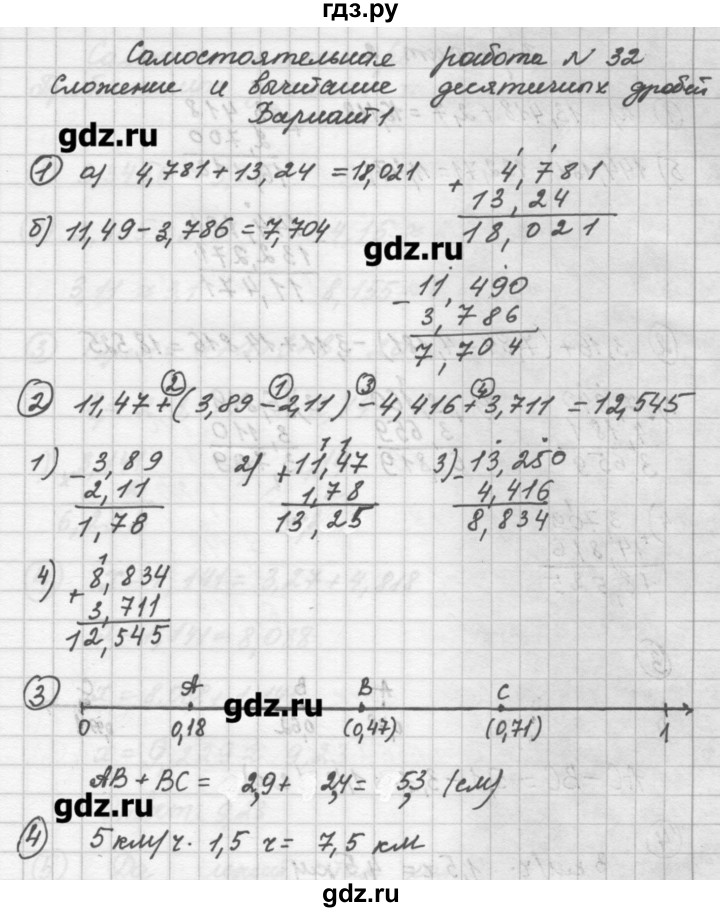 гдз.ру
Самостоятельная работа № 32
Сложение и вычитание десятичных дробей
Вариант 1
gdz.ru
① а) 4,781 + 13,24 = 18,021
+ 4,781
13,24
18,021
б) 11,49 - 3,786 = 7,704
gdz.ru
- 11,490
3,786
7,704
② 11,47 + (3,89 - 2,11) - 4,416 + 3,711 = 12,545
② ① ③ ④
1) - 3,89
2,11
1,78
2) + 11,47
1,78
13,25
3) - 13,250
4,416
8,834
4) + 8,834
3,711
12,545
③ A B C
gdz.ru
0 0,18 (0,47) (0,71) 1
AB + BC = 2,9 + 2,4 = 5,3 (см)
gdz.ru
④ 5 км/ч · 1,5 ч = 7,5 км
gdz.ru